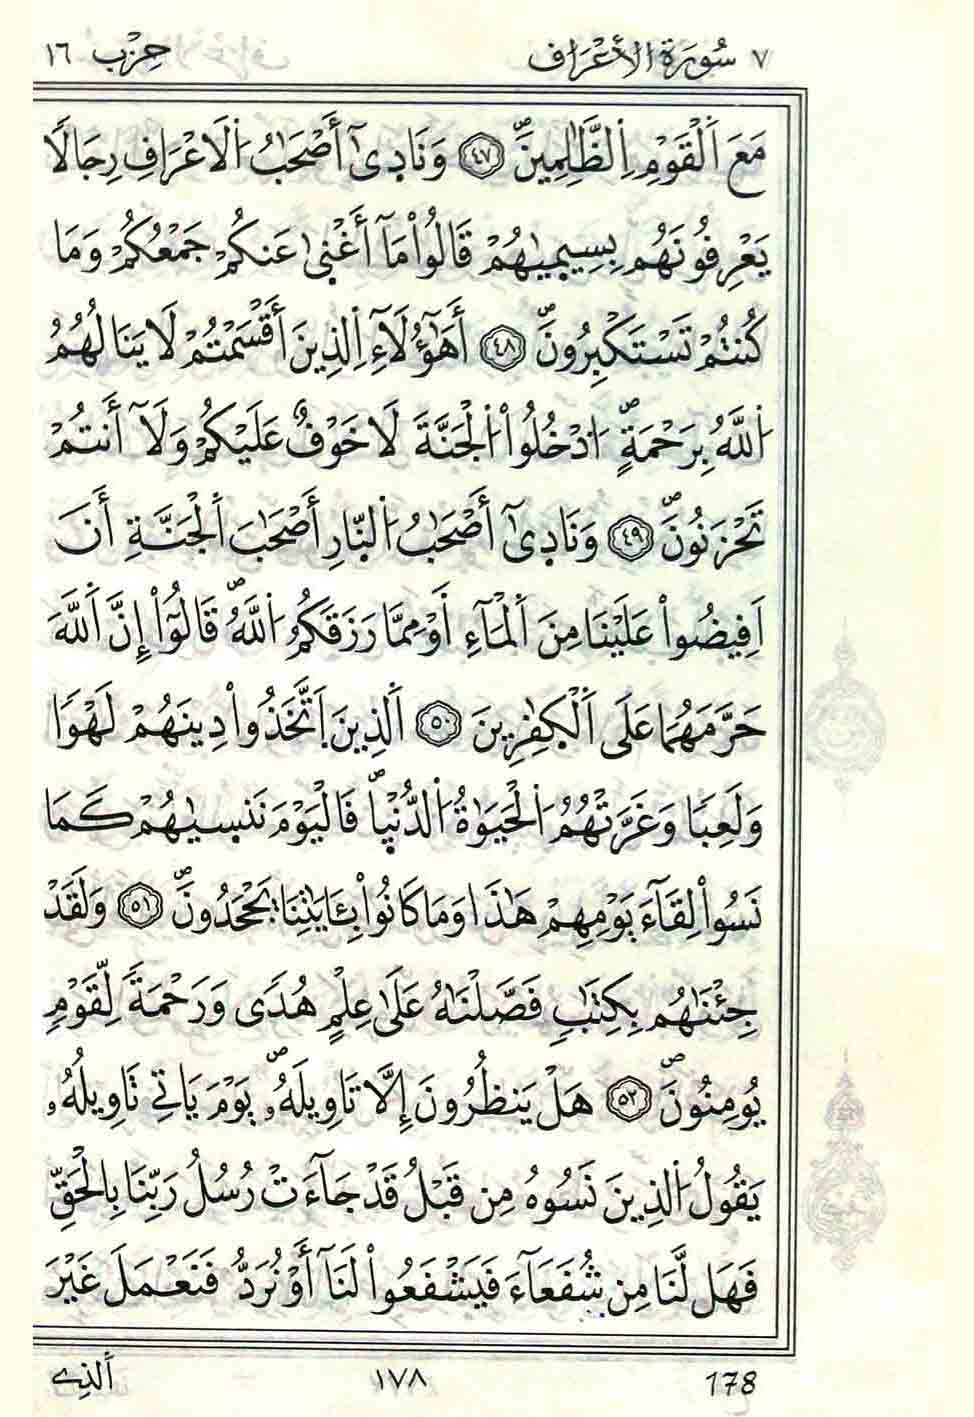 ٧ سُورَةُ الأَعْرَافِ حِزْب ١٦
مَعَ اَ۬لْقَوْمِ اِ۬لظَّٰلِمِينَۖ ٤٧ وَنَادِىٰٓ أَصْحَٰبُ اُ۬لَاعْرَافِ رِجَالاٗ
يَعْرِفُونَهُم بِسِيمِيٰهُمْ قَالُواْ مَآ أَغْنِىٰ عَنكُمْ جَمْعُكُمْ وَمَا
كُنتُمْ تَسْتَكْبِرُونَۖ ٤٨ أَهَٰٓؤُلَآءِ اِ۬لذِينَ أَقْسَمْتُمْ لَا يَنَالُهُمُ
اُ۬للَّهُ بِرَحْمَةٍۖ اَ۟دْخُلُواْ اُ۬لْجَنَّةَ لَا خَوْفٌ عَلَيْكُمْ وَلَآ أَنتُمْ
تَحْزَنُونَۖ ٤٩ وَنَادِىٰٓ أَصْحَٰبُ اُ۬لنّ۪ارِ أَصْحَٰبَ اَ۬لْجَنَّةِ أَنَ
اَفِيضُواْ عَلَيْنَا مِنَ اَ۬لْمَآءِ أَوْ مِمَّا رَزَقَكُمُ اُ۬للَّهُۖ قَالُوٓاْ إِنَّ اَ۬للَّهَ
حَرَّمَهُمَا عَلَى اَ۬لْكٰ۪فِرِينَ ٥٠ اَ۬لذِينَ اَ۪تَّخَذُواْ دِينَهُمْ لَهْواٗ
وَلَعِباٗ وَغَرَّتْهُمُ اُ۬لْحَيَوٰةُ اُ۬لدُّنْي۪اۖ فَالْيَوْمَ نَنسِيٰهُمْ كَمَا
نَسُواْ لِقَآءَ يَوْمِهِمْ هَٰذَا وَمَا كَانُواْ بِـَٔايَٰتِنَا يَجْحَدُونَۖ ٥١ وَلَقَدْ
جِئْنَٰهُم بِكِتَٰبٖ فَصَّلْنَٰهُ عَلَىٰ عِلْمٍ هُدىٗ وَرَحْمَةٗ لِّقَوْمٖ
يُومِنُونَۖ ٥٢ هَلْ يَنظُرُونَ إِلَّا تَاوِيلَهُۥۖ يَوْمَ يَاتِے تَاوِيلُهُۥ
يَقُولُ اُ۬لذِينَ نَسُوهُ مِن قَبْلُ قَدْ جَآءَتْ رُسُلُ رَبِّنَا بِالْحَقِّ
فَهَل لَّنَا مِن شُفَعَآءَ فَيَشْفَعُواْ لَنَآ أَوْ نُرَدُّ فَنَعْمَلَ غَيْرَ
178 ١٧٨ اَ۬لذِے